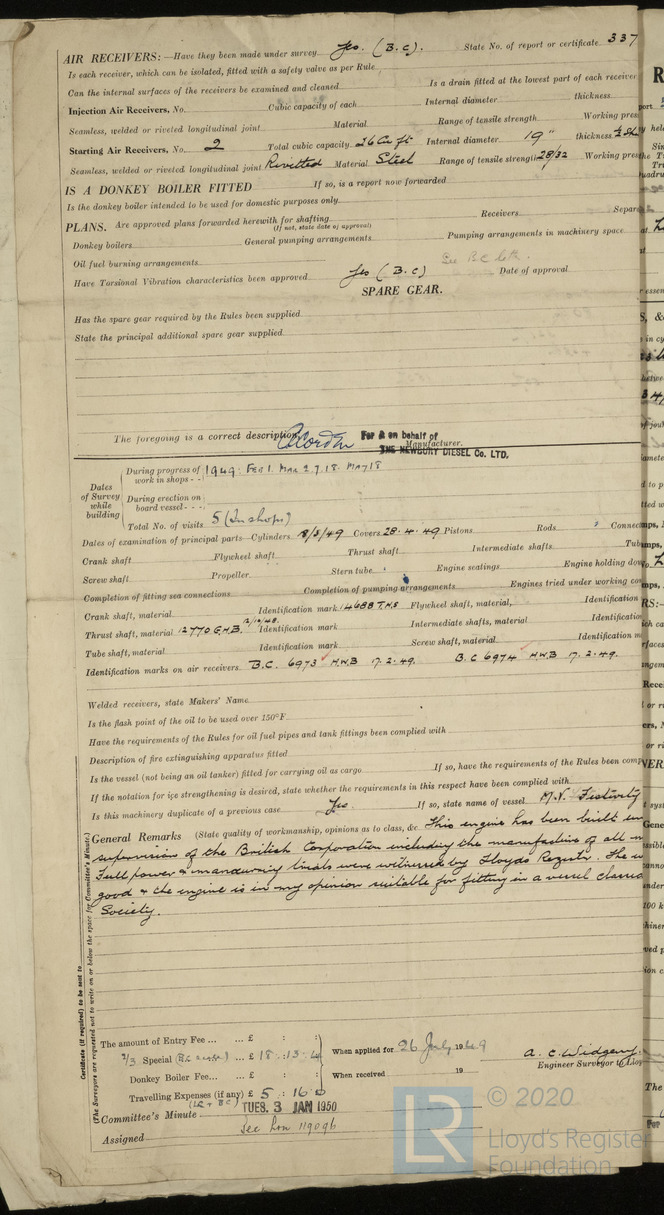 AIR RECEIVERS:—Have they been made under survey Yes. (B.C). State No. of report or certificate 337
Is each receiver, which can be isolated, fitted with a safety valve as per Rule
Can the internal surfaces of the receivers be examined and cleaned Is a drain fitted at the lowest part of each receiver
Injection Air Receivers, No. Cubic capacity of each Internal diameter thickness
Seamless, welded or riveted longitudinal joint Material Range of tensile strength Working pres
Starting Air Receivers, No. 2 Total cubic capacity 26 Cu ft Internal diameter 19" thickness
Seamless, welded or riveted longitudinal joint Rivetted Material Steel Range of tensile strength 28/32 Working pres
IS A DONKEY BOILER FITTED If so, is a report now forwarded
Is the donkey boiler intended to be used for domestic purposes only
PLANS. Are approved plans forwarded herewith for shafting Receivers Separ
(If not, state date of approval)
Donkey boilers General pumping arrangements Pumping arrangements in machinery space
Oil fuel burning arrangements See B.C.
Have Torsional Vibration characteristics been approved Yes (B.C) Date of approval
SPARE GEAR.
Has the spare gear required by the Rules been supplied
State the principal additional spare gear supplied
The foregoing is a correct description, For & on behalf of Manufacturer.
THE NEWBURY DIESEL Co. LTD.
Dates of Survey while building
During progress of work in shops - - 1949: FEB 1. MAR 2.7.18. MAY 18
During erection on board vessel - - -
Total No. of visits 5 (In shops)
Dates of examination of principal parts—Cylinders 18/3/49 Covers 28.4.49 Pistons Rods Connec
Crank shaft Flywheel shaft Thrust shaft Intermediate shafts Tub
Screw shaft Propeller Stern tube Engine seatings Engine holding dow
Completion of fitting sea connections Completion of pumping arrangements Engines tried under working con
Crank shaft, material Identification mark 14688 T.H.S Flywheel shaft, material, Identification
Thrust shaft, material 12770 G.H.B. 12/10/48. Identification mark Intermediate shafts, material Identification
Tube shaft, material Identification mark Screw shaft, material Identification m
Identification marks on air receivers B.C. 6973 H.W.B 17.2.49. B.C 6974 H.W.B 17.2.49.
Welded receivers, state Makers' Name
Is the flash point of the oil to be used over 150°F
Have the requirements of the Rules for oil fuel pipes and tank fittings been complied with
Description of fire extinguishing apparatus fitted
Is the vessel (not being an oil tanker) fitted for carrying oil as cargo If so, have the requirements of the Rules been comp
If the notation for ice strengthening is desired, state whether the requirements in this respect have been complied with
Is this machinery duplicate of a previous case Yes. If so, state name of vessel M.V. Festivity
General Remarks (State quality of workmanship, opinions as to class, &c. This engine has been built un
supervision of the British Corporation including the manufacture of all
Full power & manœuvring trials were witnessed by Lloyds Register. The w
good & the engine is in my opinion suitable for fitting in a vessel classed
Society.
Certificate (if required) to be sent to
(The Surveyors are requested not to write on or below the space for Committee's Minute.)
The amount of Entry Fee ... ... £ : :
2/3 Special ... £ 18 : 13 : 4 When applied for 26 July 1949
A. C. Widgery.
Engineer Surveyor to Lloy
Donkey Boiler Fee... ... £ : : When received 19
Travelling Expenses (if any) £ 5 : 16 0
(LR + BC)
Committee's Minute TUES. 3 JAN 1950
Assigned See Lon 119096
LR
© 2020
Lloyd's Register
Foundation